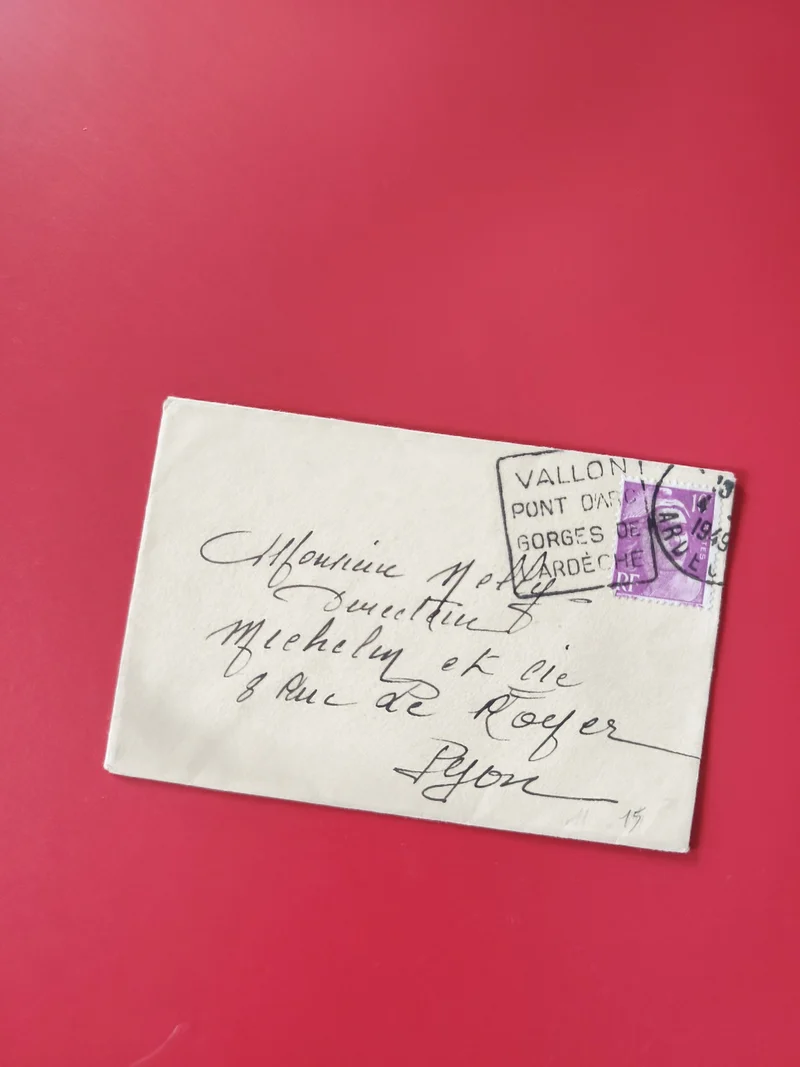 VALLON
PONT D'ARC
GORGES DE
L'ARDÈCHE
1949
RF
Monsieur
Directeur
Michelin et Cie
8 Rue de Royer
Lyon
15